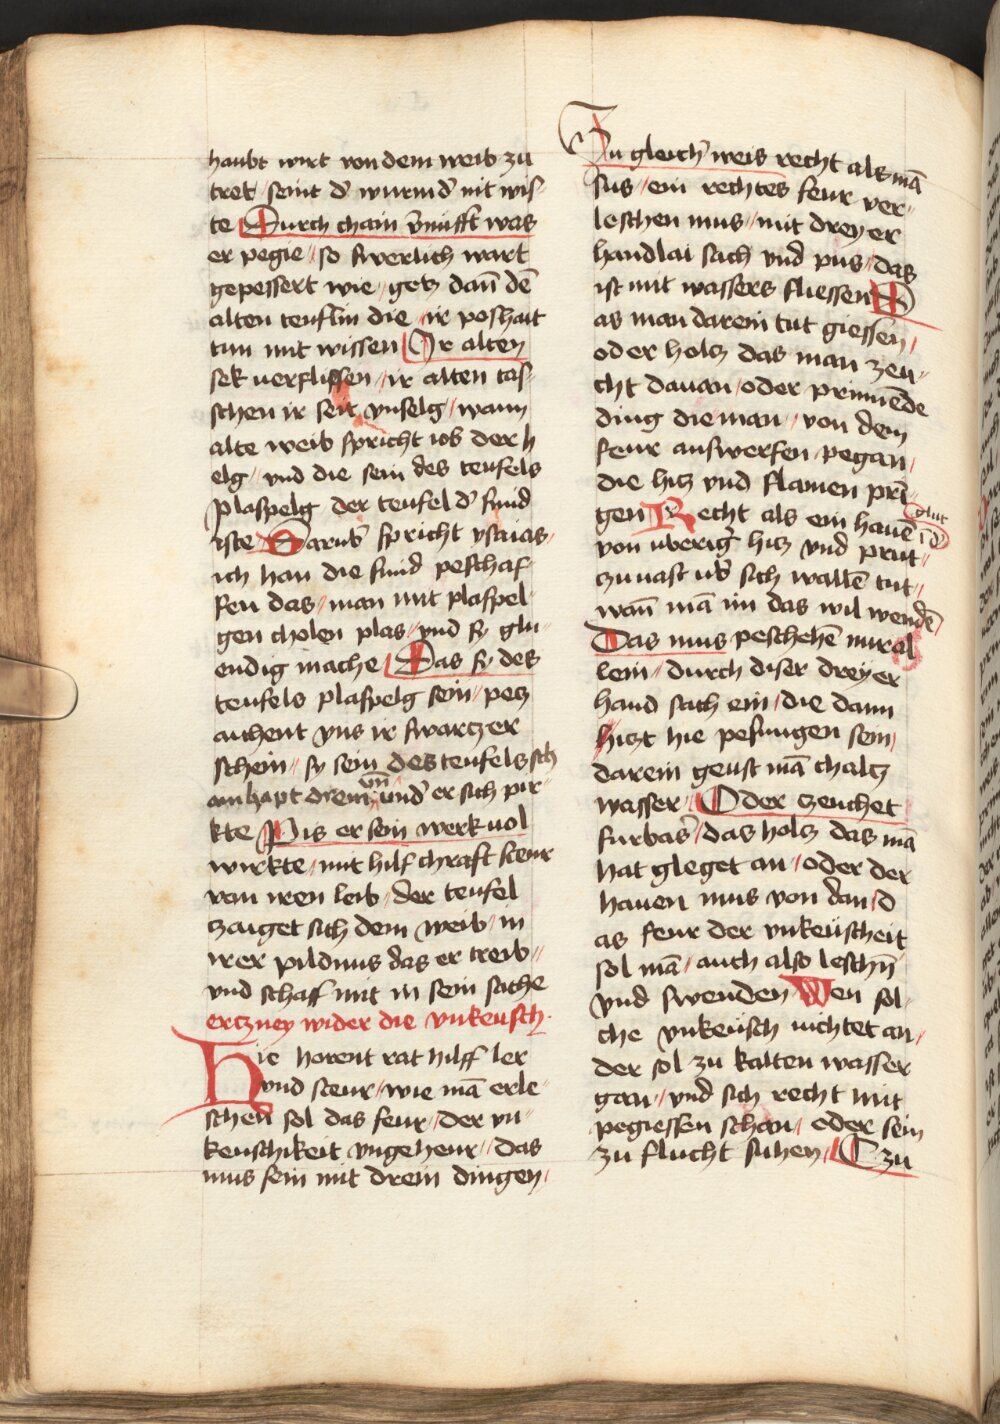 haubt wirt von dem weib zu
tret / seint d' wurmd' nit wis-
te Durch chain v̄nufft was
er pegie // so swerlich wart
gepessert wie / getz dan̄ dē
alten teuflin die / ir poshait
tun mit wissen Ir alten
sek verflissen // ir alten tas-
schen ir seit vnselg / wann
alte weib spricht iob der h
elg / vnd die sein des teufels
plaspelg der teufel d' sund
iste Darub' spricht ysaias /
ich han die sund peschaf-
fen das / man mit plaspel-
gen cholen plas // vnd sy glu-
endig mache Das sy des
teufels plaspelg sein // petz
auchent vns ir swarczer
schein // sy sein des teufels sch
vn̄
amhapt drein und' er sich pir-
kte Pis er sein werk uol
wirkte / mit hilf chraft steur
van iren leib / der teufel
zaiget sich dem weib / in
irer pildnus das er treib //
vnd schaff mit in sein sache
erczney wider die vnkeusch.
Hie horent rat hilff ler
vnd steur / wie mā erle-
schen sol das feur / der vn-
keuschikeit vngeheur / das
mus sein mit drein dingen /
In gleich' weis recht als mā
sus / ein rechtes feur ver-
leschen mus // mit dreyer
handlai sach vnd pus / das
ist mit wassers fliessen W
as man darein tut giessen /
oder holtz das man zeu-
cht dauan / oder prinnēde
ding die man // von dem
feur auswerfen / pegan /
die hitz vnd flamen prī-
glut
gen Recht als ein hauē īd'
von uberig' hitz vnd prut-
zu uast ub' sich wallē tut /
wan̄ mā im das wil wendē /
Das mus peschehē nur al
lein / durch diser dreyer
hand sach ein / die dann
hiczt hie pesungen sein /
darein geust mā chaltz
wasser / Oder czeuchet
furbas' / das holtz das mā
hat gleget an / oder der
hauen mus von dan / d
as feur der vnkeuscheit
sol mā / auch also leschn̄
vnd swenden Wen sol-
che vnkeusch nichtet an /
der sol zu kalten wasser
gan / vnd sich recht mit
pegiessen schan / oder sein
zu flucht suhen / C zu